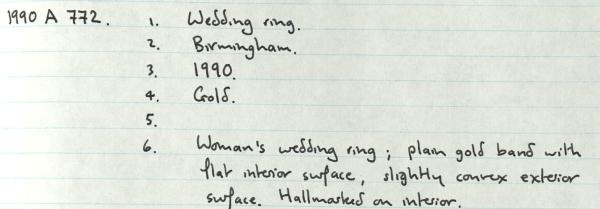 1990 A 772. 1. Wedding ring.
2. Birmingham.
3. 1990.
4. Gold.
5.
6. Woman's wedding ring; plain gold band with
flat interior surface, slightly convex exterior
surface. Hallmarked on interior.